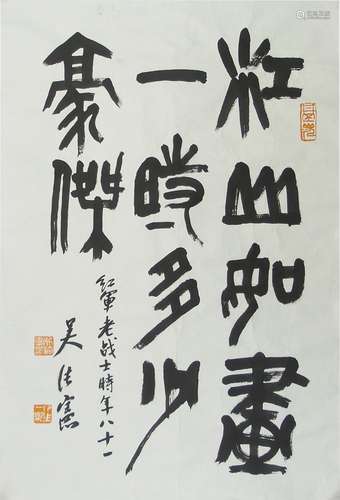 江山如畫
一時多少
豪傑
紅軍老战士時年八十一
吴法宪